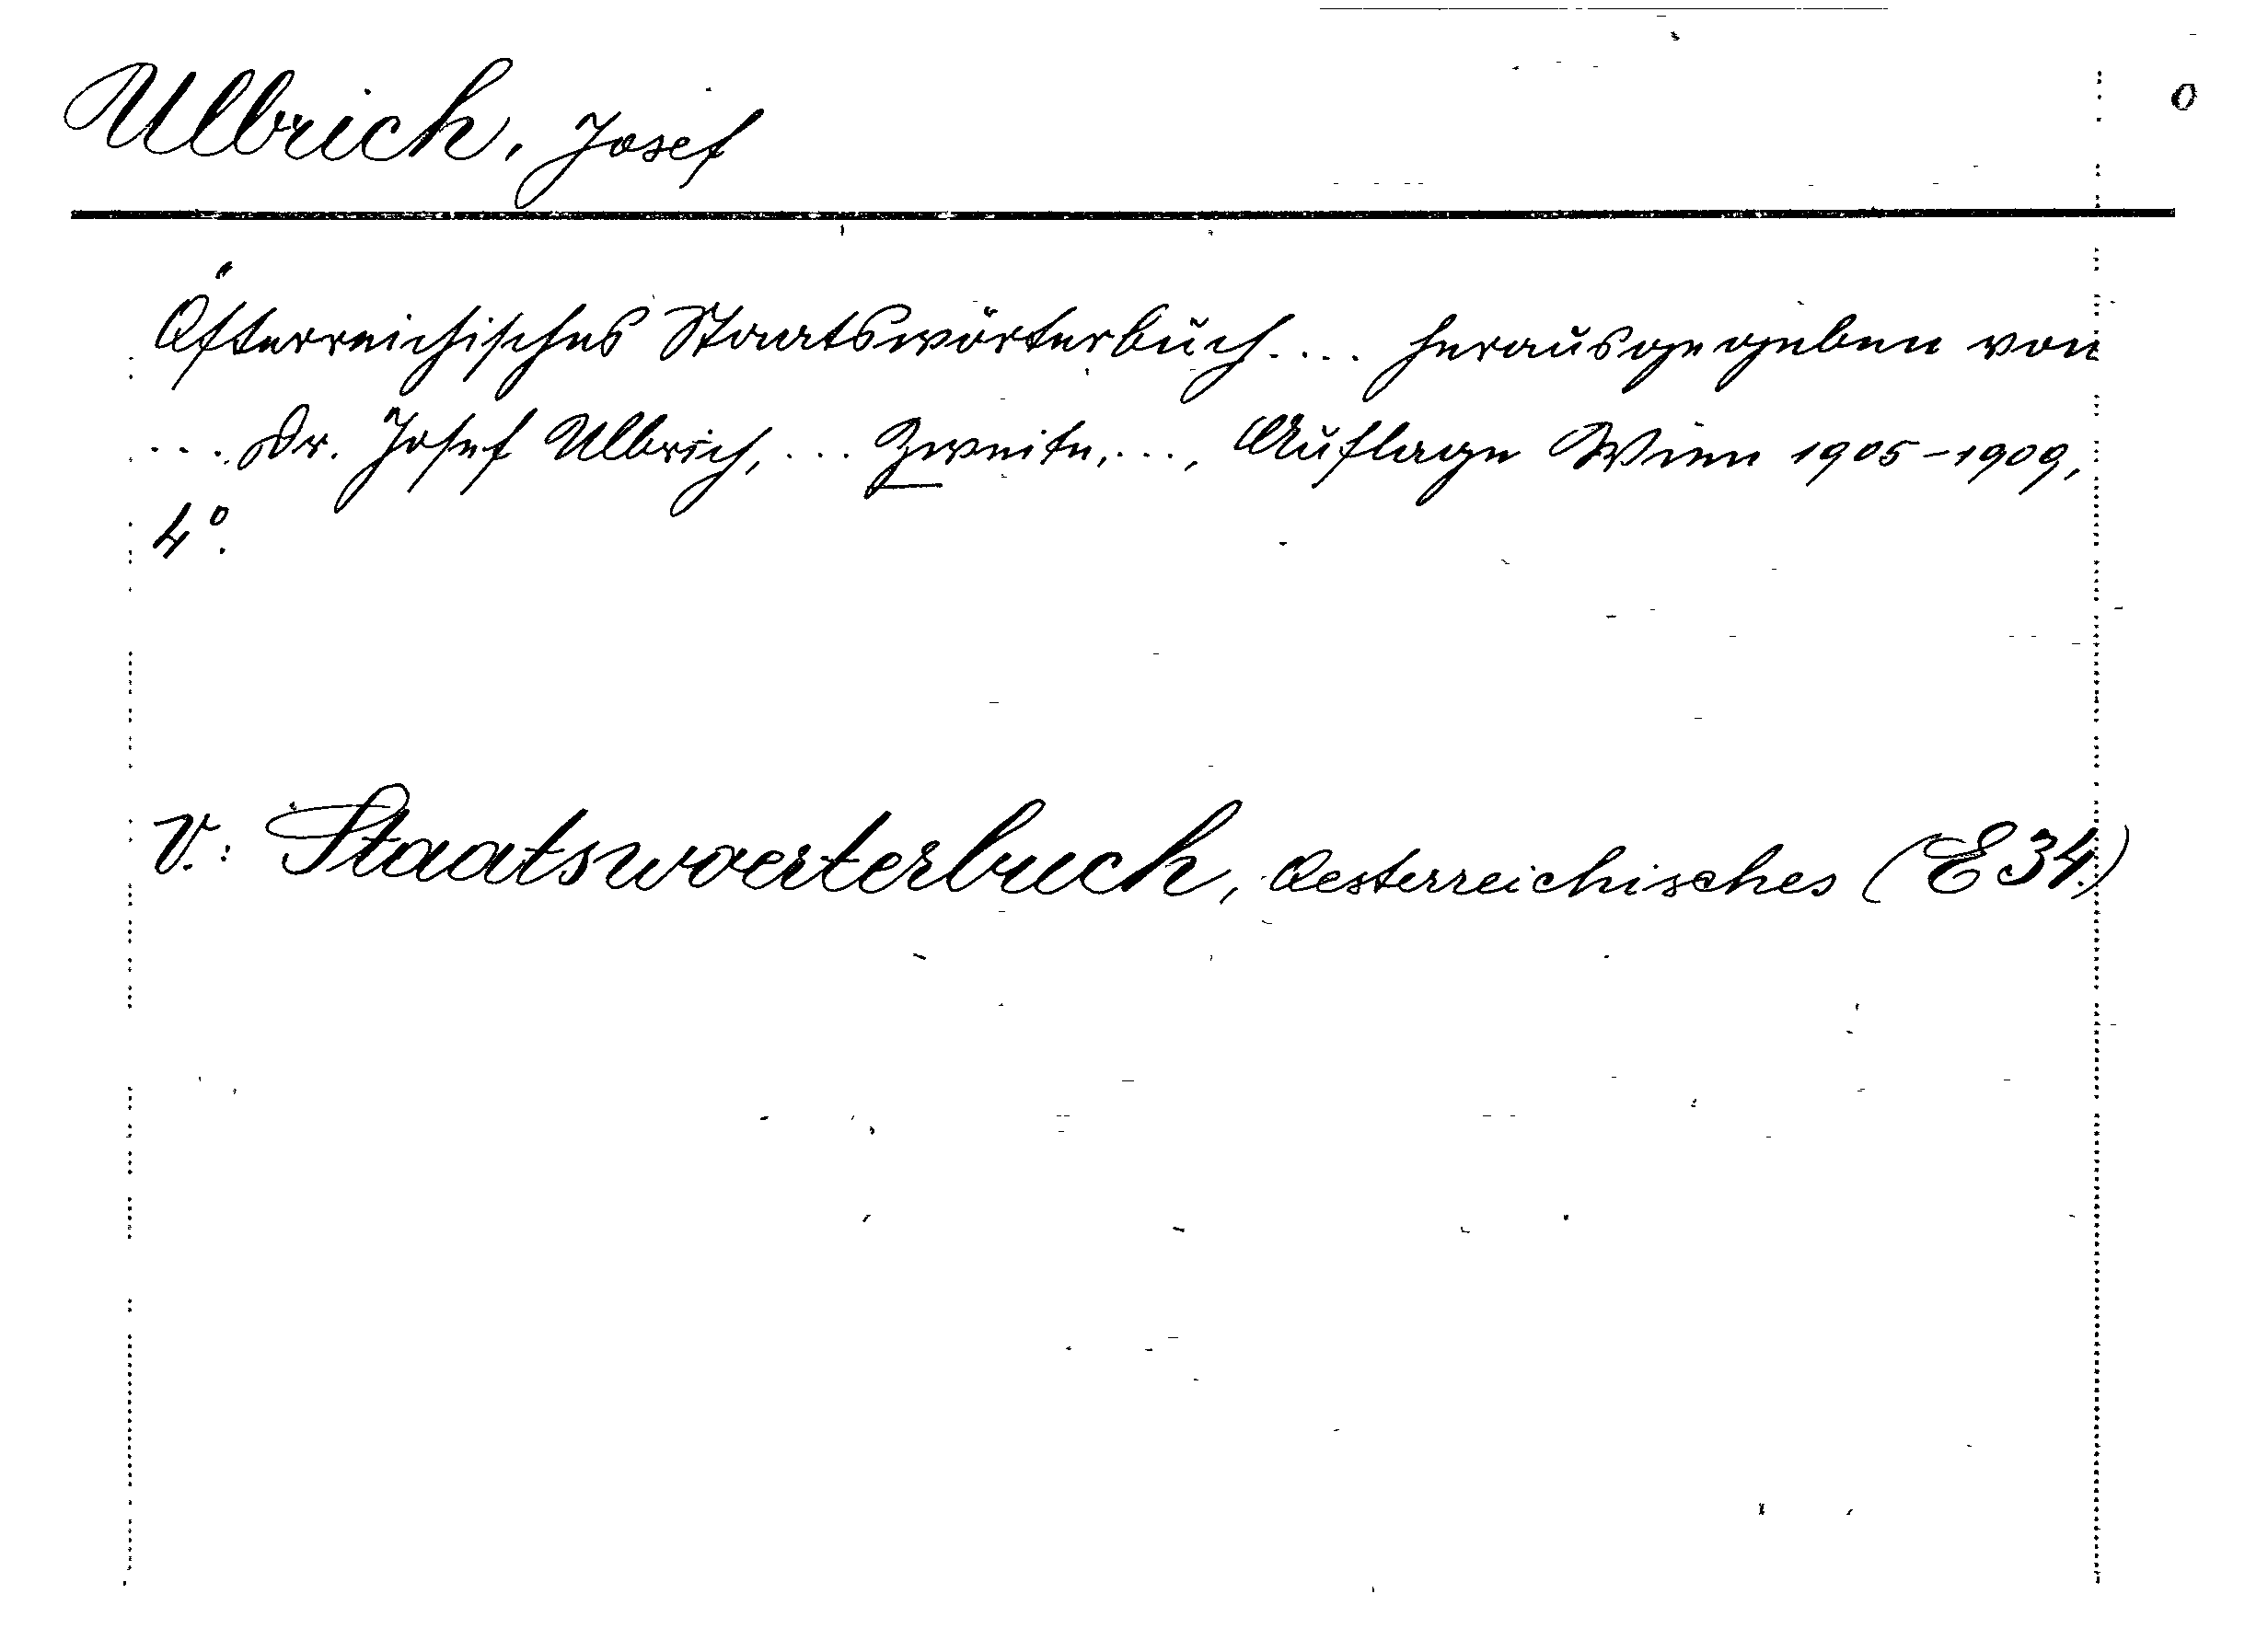 Ulbrich, Josef
o
Österreichisches Staatswörterbuch.... herausgegeben von
.... Dr. Josef Ulbrich,... Zweite,..., Auflage Wien 1905-1909,
4°.
V.: Staatswoerterbuch, Oesterreichisches (E34.)